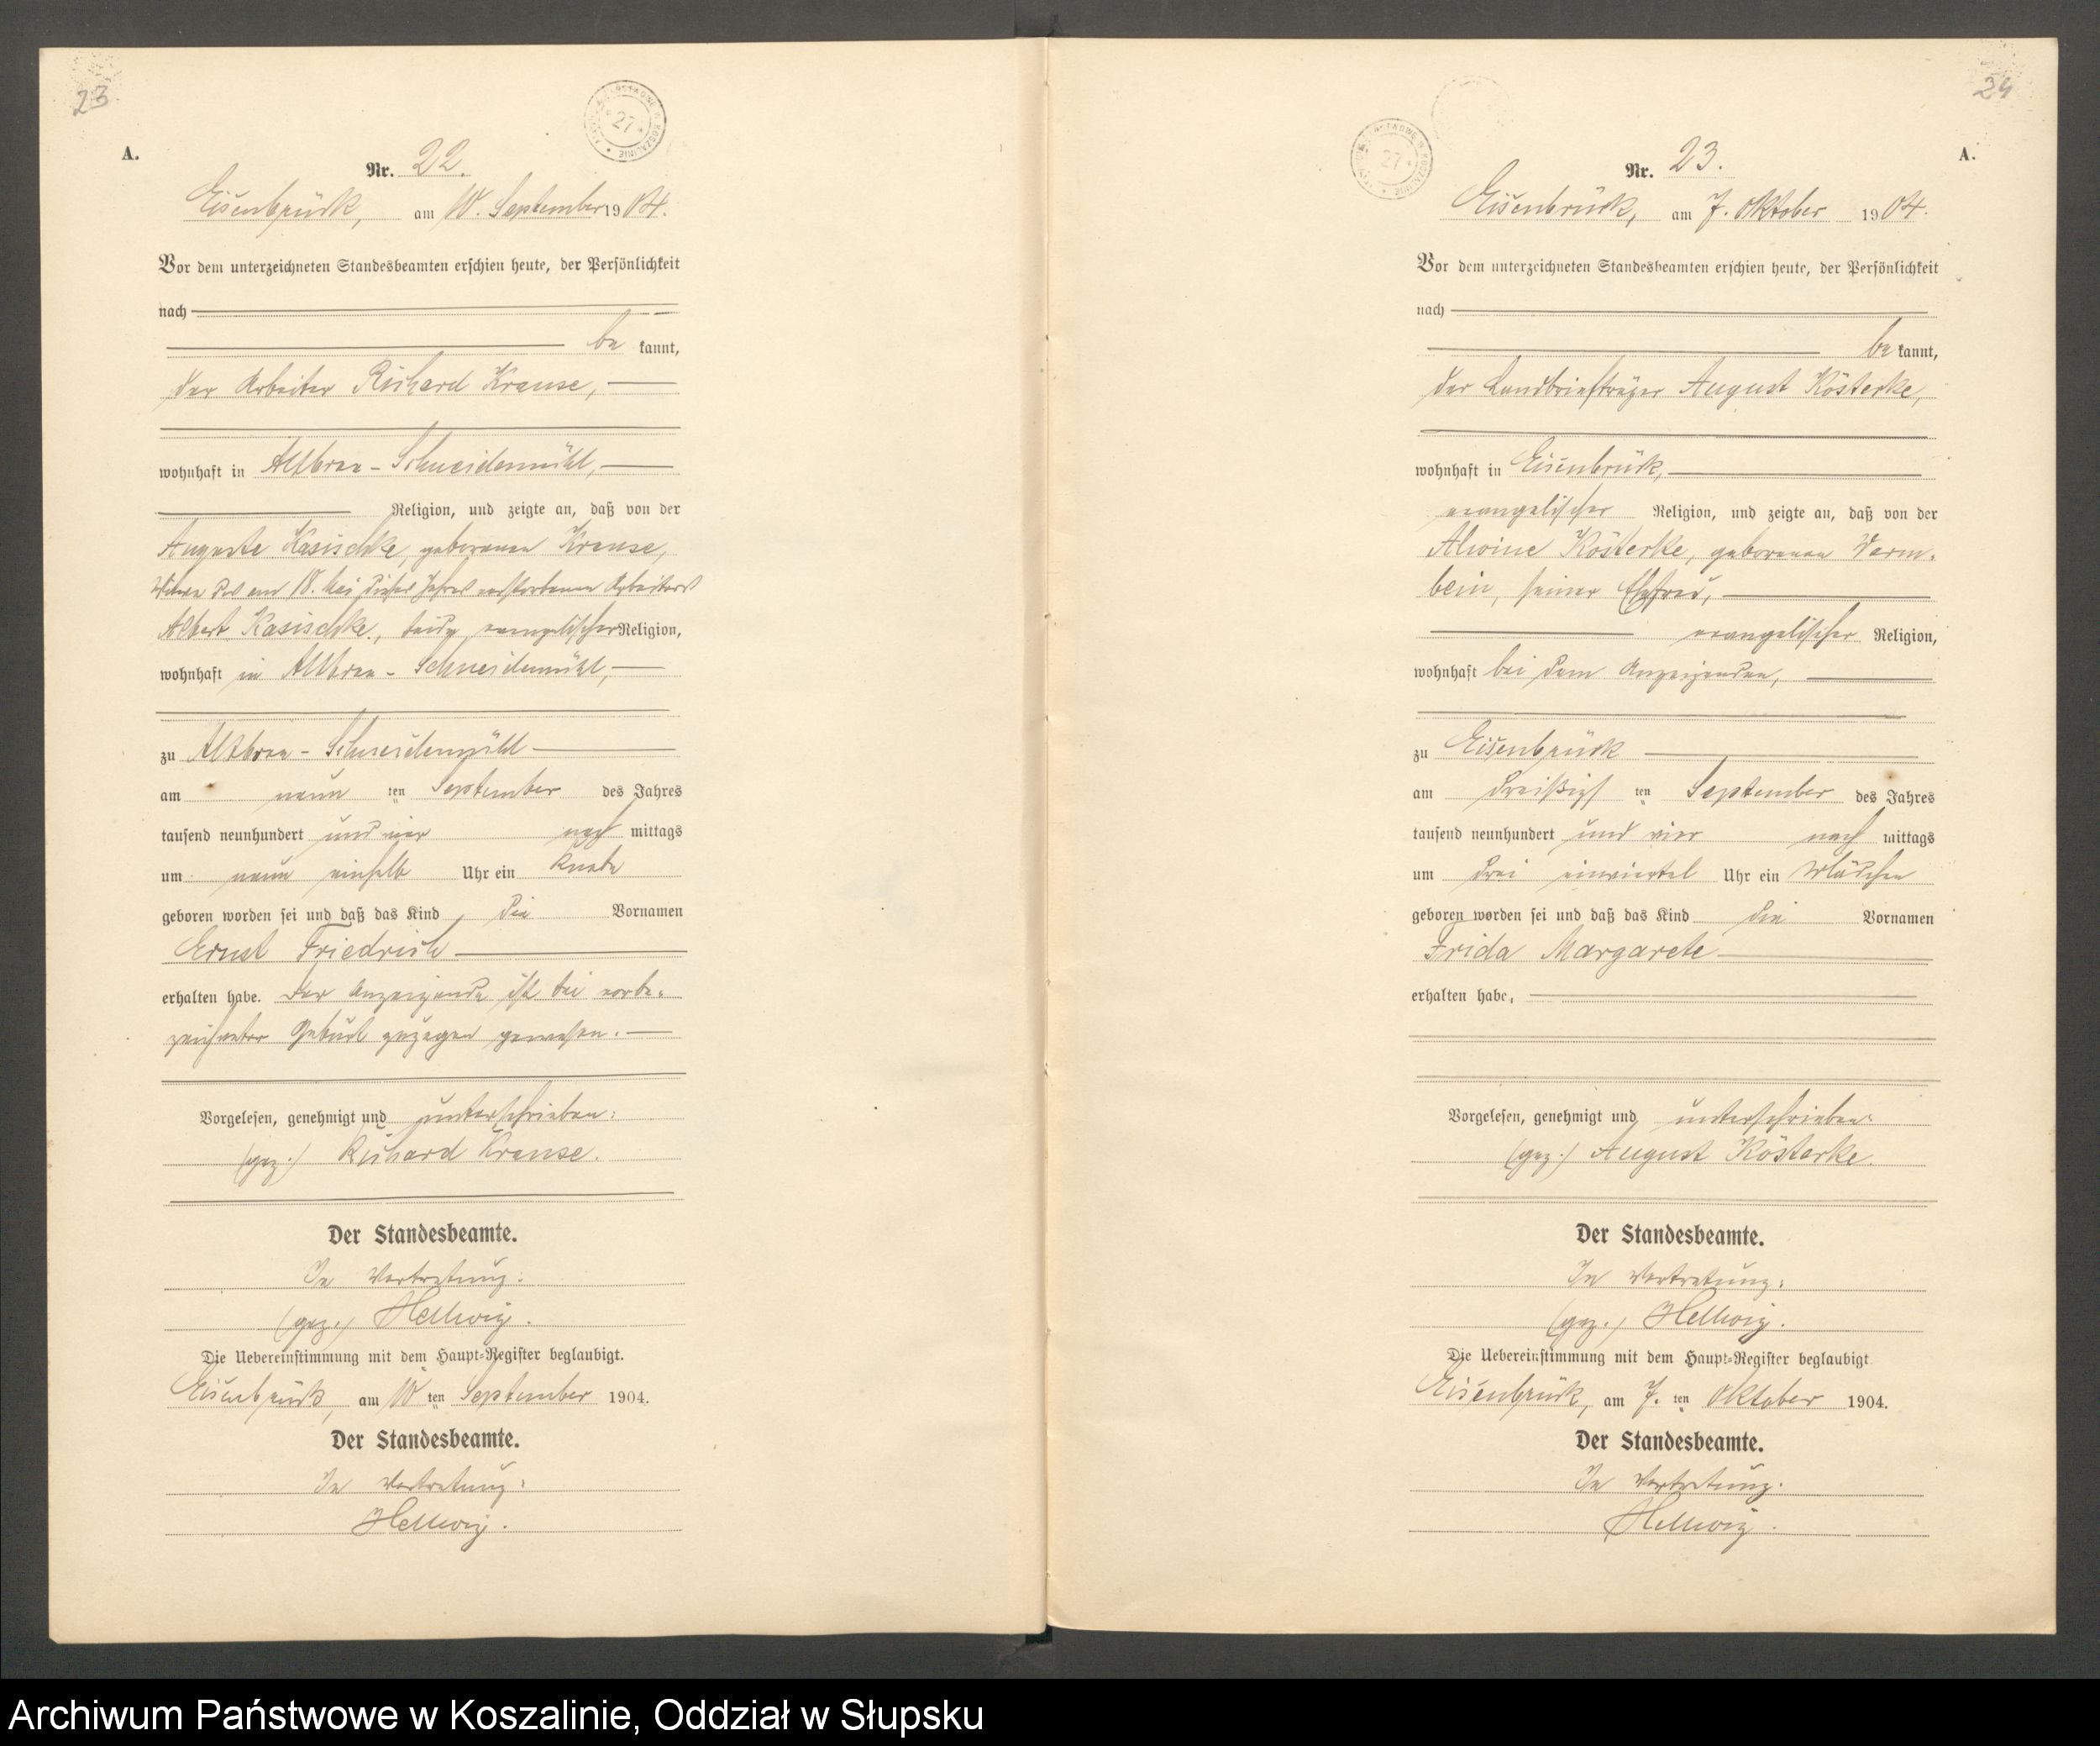 23
A.
Nr. 22.
Eisenbrück, am 10. September 1904.
Vor dem unterzeichneten Standesbeamten erschien heute, der Persönlichkeit
nach
be kannt,
der Arbeiter Richard Krause,
wohnhaft in Altbraa - Schneidemühl,
Religion, und zeigte an, daß von der
Auguste Kasischke, geborenen Krause,
Witwe des am 18. Mai dieses Jahres verstorbenen Arbeiters
Albert Kasischke, beide evangelischer Religion,
wohnhaft in Altbraa - Schneidemühl,
zu Altbraa - Schneidemühl
am neun ten September des Jahres
tausend neunhundert und vier nach mittags
um neun einhalb Uhr ein Knabe
geboren worden sei und daß das Kind die Vornamen
Ernst Friedrich
erhalten habe. Der Anzeigende ist bei vorbe-
zeichneter Geburt zugegen gewesen.
Vorgelesen, genehmigt und unterschrieben:
(gez.) Richard Krause.
Der Standesbeamte.
In Vertretung:
(gez.) Hellwig.
Die Uebereinstimmung mit dem Haupt-Register beglaubigt.
Eisenbrück, am 10 ten September 1904.
Der Standesbeamte.
In Vertretung:
Hellwig.
24
A.
Nr. 23.
Eisenbrück, am 7. Oktober 1904.
Vor dem unterzeichneten Standesbeamten erschien heute, der Persönlichkeit
nach
be kannt,
der Landbriefträger August Kösterke,
wohnhaft in Eisenbrück,
evangelischer Religion, und zeigte an, daß von der
Alwine Kösterke, geborenen Warm-
bein, seiner Ehefrau,
evangelischer Religion,
wohnhaft bei dem Anzeigenden,
zu Eisenbrück
am dreißigs ten September des Jahres
tausend neunhundert und vier nach mittags
um drei einviertel Uhr ein Mädchen
geboren worden sei und daß das Kind die Vornamen
Frida Margarete
erhalten habe,
Vorgelesen, genehmigt und unterschrieben:
(gez.) August Kösterke.
Der Standesbeamte.
In Vertretung:
(gez.) Hellwig.
Die Uebereinstimmung mit dem Haupt-Register beglaubigt
Eisenbrück, am 7. ten Oktober 1904.
Der Standesbeamte.
In Vertretung.
Hellwig.
Archiwum Państwowe w Koszalinie, Oddział w Słupsku